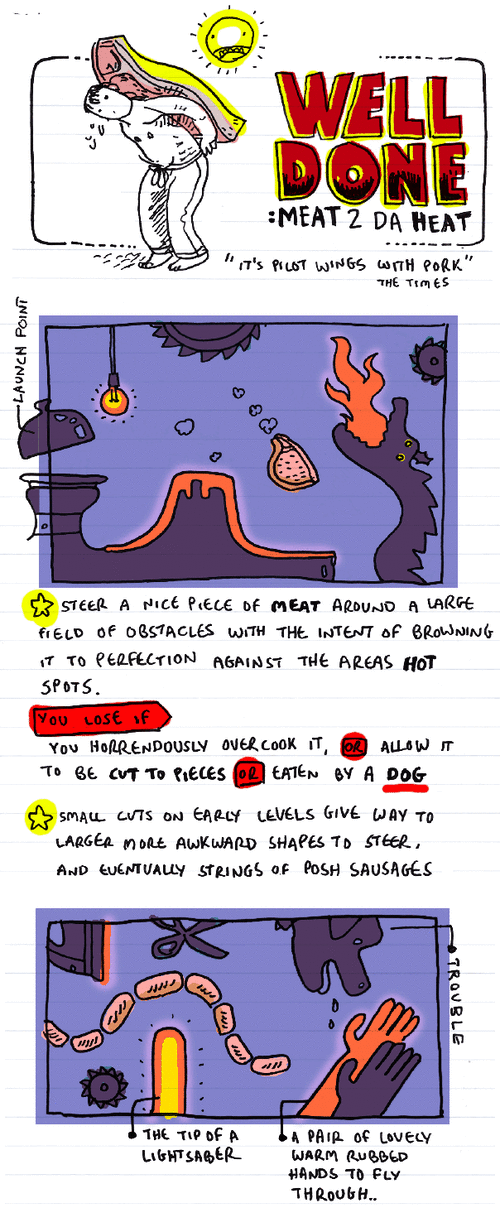 WELL
DONE
:MEAT 2 DA HEAT
"IT'S PILOT WINGS WITH PORK"
THE TIMES
LAUNCH POINT
STEER A NICE PIECE OF MEAT AROUND A LARGE
FIELD OF OBSTACLES WITH THE INTENT OF BROWNING
IT TO PERFECTION AGAINST THE AREAS HOT
SPOTS.
YOU LOSE IF
YOU HORRENDOUSLY OVERCOOK IT, OR ALLOW IT
TO BE CUT TO PIECES OR EATEN BY A DOG
SMALL CUTS ON EARLY LEVELS GIVE WAY TO
LARGER MORE AWKWARD SHAPES TO STEER,
AND EVENTUALLY STRINGS OF POSH SAUSAGES
TROUBLE
THE TIP OF A
LIGHTSABER
A PAIR OF LOVELY
WARM RUBBED
HANDS TO FLY
THROUGH..